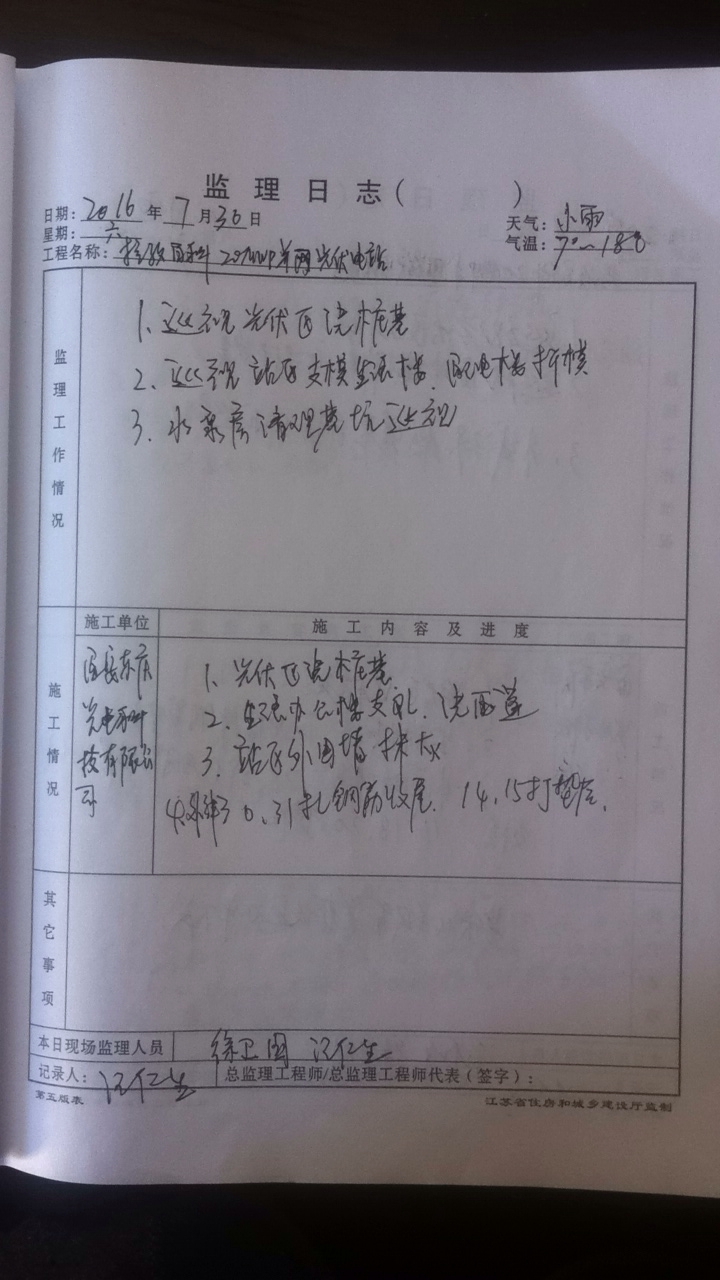 监理日志( )
日期：2016年7月30日
天气：小雨
星期：六
气温：7°~18℃
工程名称： 20MWP 光伏电站
监理工作情况
1、巡视光伏区浇桩基
2、巡视站区支模生活楼、配电楼拆模
3、水泵房清理基坑巡视
施工情况
施工单位
施工内容及进度
光电科
技有限公
司
1、光伏区浇桩基
2、生活办公楼支 、浇
3、站区外围墙
4、 0.31扎钢筋 14、15打垫层.
其它事项
本日现场监理人员
徐卫国 汪仁生
记录人：汪仁生
总监理工程师/总监理工程师代表（签字）：
第五版表
江苏省住房和城乡建设厅监制